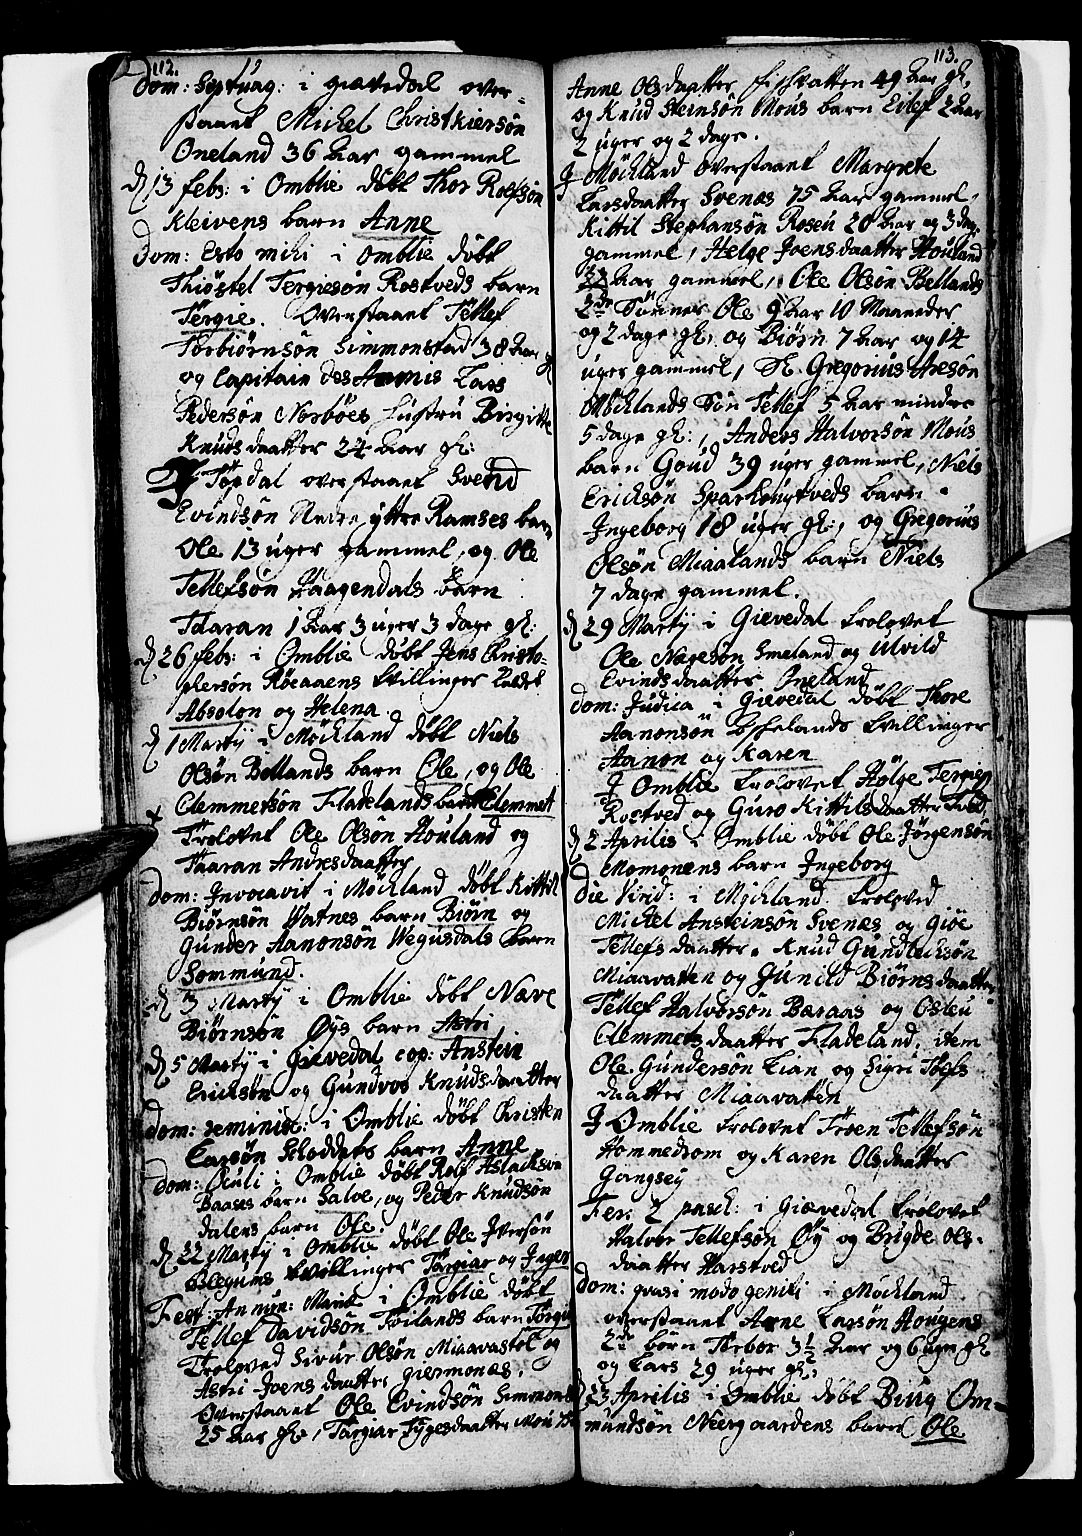 112.
Dom: Septuag: i giævedal over-
staaet Michel Christkiersøn
Oneland 36 Aar gammel
d 13 febr: i Omblie døbt Thor Rolfsøn
Kleivens barn Anne
Dom: Esto mihi i Omblie døbt
Thiøstel Tergiesøn Rostveds barn
Tergie. Overstaaet Tellef
Torbiørnsøn Simmonstad 38 Aar gl
og Capitain des Armis Lars
Pedersøn Norbøes hustru Birgitte
Knudsdaatter 24 aar gl:
I Topdal overstaaet Svend
Evindsøn Nedre yttre Ramses barn
Ole 13 uger gammel, og Ole
Tellefsøn Haagendals barn
Taaran 1 Aar 3 uger 3 dage gl:
d 26 febr: i Omblie døbt Jens Christo-
phersøn Røeaaens tvillinger kaldet
Absolon og Helena.
d 1 Martÿ i Møckland døbt Niels
Olsøn Bellands barn Ole, og Ole
Clemmetsøn Fladelands barn Clemmet
Trolovet Ole Olsøn Houland og
Taaran Andresdaatter
Dom: Invocavit i Møckland døbt Kittil
Biørnsøn Vatnes barn Biørn og
Gunder Aanonsøn Wegusdals barn
Sommund.
d 3 Martÿ i Omblie døbt Nave
Biørnsøn Øys barn Astri
d 5 Martÿ i Gievedal cop: Anstein
Ericksøn og Gundvor Knudsdaatter
Dom: reminisc: i Omblie døbt Christen
Larsøn Skoddets barn Anne
Dom: Oculi i Omblie døbt Rolf Aslacksøn
Baases barn Salve, og Peder Knudsøn
Dalens barn Ole.
d 22 Martÿ i Omblie døbt Ole Iversøn
Blegums tvillinger Targiær og Inger
Fest: Annun: Mariæ i Omblie døbt
Tellef Davidsøn Føilands barn Tørgier
Troloved Sivur Olsøn Miaavastøl og
Astri Joensdaatter giermonæs.
Overstaaet Ole Evindsøn Simmones
25 Aar gl, Targiær Tygesdaatter Mou 75
113.
Anne Olsdaatter fischvatten 49 Aar gl.
og Knud Steensøn Mous barn Eilef 2 Aar
2 uger og 2 dage.
I Møckland overstaaet Margrete
Larsdaatter Svenæs 75 Aar gammel,
Kittil Stephansøn Rosen 20 Aar og 3 dage
gammel, Helge Joensdaatter Houland
33 Aar gammel, Ole Olsøn Bellands
2de Sønner Ole 9 Aar 10 Maaneder
og 2 dage gl: og Biørn 7 Aar og 14
uger gammel, Sl. Gregorius Aresøn
Møcklands Søn Tellef 5 Aar mindre
5 dage gl:, Anders Halvorsøn Mous
barn Goud 39 uger gammel, Niels
Ericksøn Sparhougtveds barn
Ingeborg 18 uger gl:, og Gregorius
Olsøn Miaalands barn Niels
7 dage gammel.
d 29 Martÿ i Gievedal trolovet
Ole Nægesøn Smeland og Ulvild
Evindsdaatter Oneland
Dom: Judica i Gievedal døbt Thore
Aanonsøn Espelands tvillinger
Aanon og Karen
I Omblie trolovet Hølge Tergies
Rostved og Guro Kittilsdaatter
d 2 Aprilis i Omblie døbt Ole Jørgensøn
Momonens barn Ingeborg
Die Virid: i Mickland. troloved
Michel Ansteinsøn Svenæs og Giøe
Tellefsdaatter. Knud Gundlecksøn
Miaavatten og Gunild Biørnsdaatter
Tellef Halvorsøn Bæraas og Osleu
Clemmetsdaatter Fladeland, item
Ole Gundersøn Lian og Sigri Tolfs
daatter Miaavatten
I Omblie trolovet Troen Tellefsøn
Hommedrom og Karen Olsdaatter
Gangsey
Fer: 2 pasch: i Giævedal trolovet
Halvor Tellefsøn Øy og Brigde Ols-
daatter Harstved
Dom: qvasi modo geniti i Møckland
overstaaet Anne Larsøn Hougens
2de børn Torbor 3½ Aar og 6 uger gl
og Lars 29 uger gl:
d 23 Aprilis i Omblie døbt Buug Om-
mundsøn Neergaardens barn Ole